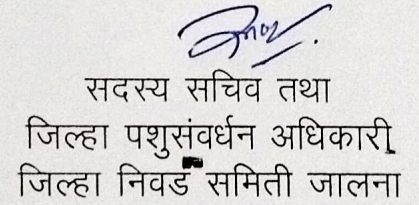 सदस्य सचिव तथा
जिल्हा पशुसंवर्धन अधिकारी
जिल्हा निवड समिती जालना